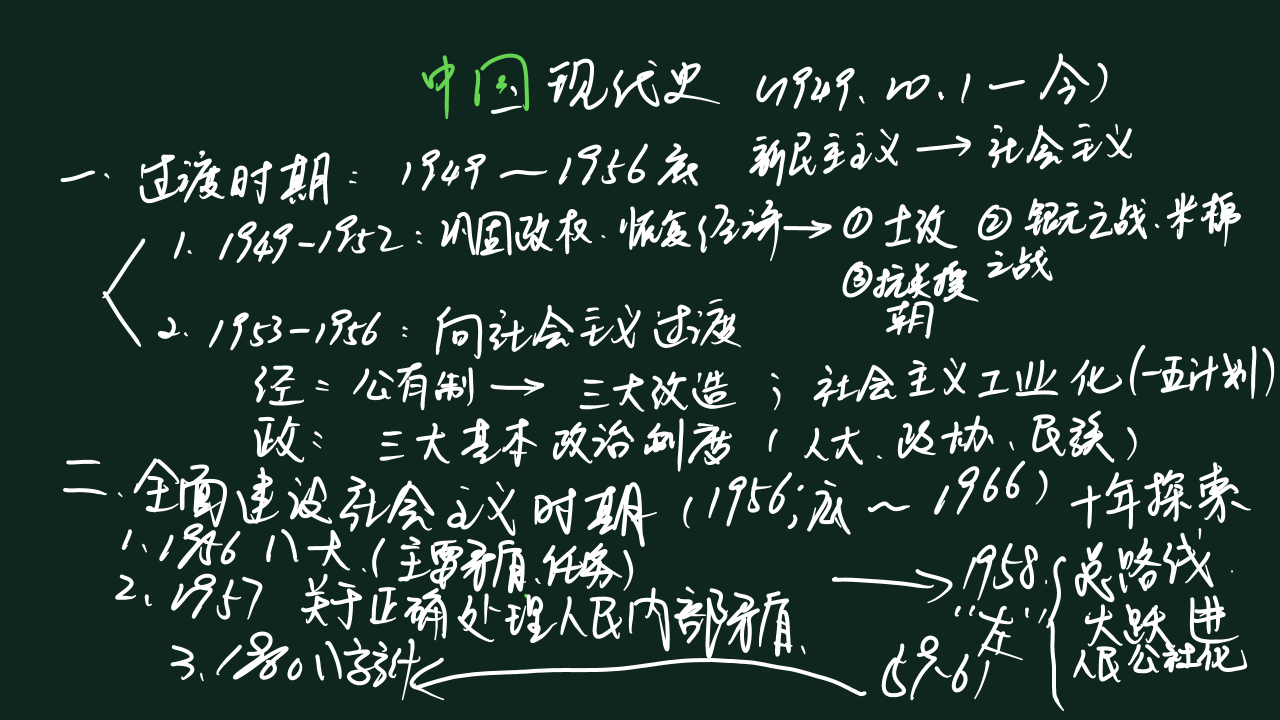 中国现代史 (1949.10.1－今)
一. 过渡时期: 1949—1956底 新民主主义→社会主义
1. 1949-1952: 巩固政权.恢复经济→①土改 ②银元之战.米棉之战
③抗美援朝
2. 1953-1956: 向社会主义过渡
经: 公有制→三大改造; 社会主义工业化(一五计划)
政: 三大基本政治制度(人大.政协、民族)
二、全面建设社会主义时期(1956;底~1966)十年探索
1.1956八大(主要矛盾、任务)
2、1957 关于正确处理人民内部矛盾.
→1958. "左" 总路线 大跃进 人民公社化
(59~61
3.1960八字